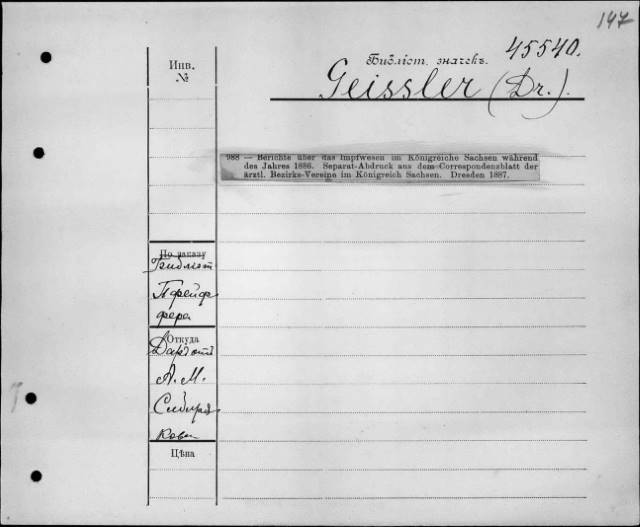 147
45540.
Библіот. значекъ.
Инв.
№
Geissler (Dr.).
988 — Berichte über das Impfwesen im Königreiche Sachsen während
des Jahres 1886. Separat-Abdruck aus dem Correspondenzblatt der
ärztl. Bezirks-Vereine im Königreich Sachsen. Dresden 1887.
По заказу
Библіот
Пфейф
фера
Откуда
Даръ отъ
А. М.
Сибиря
кова
Цѣна